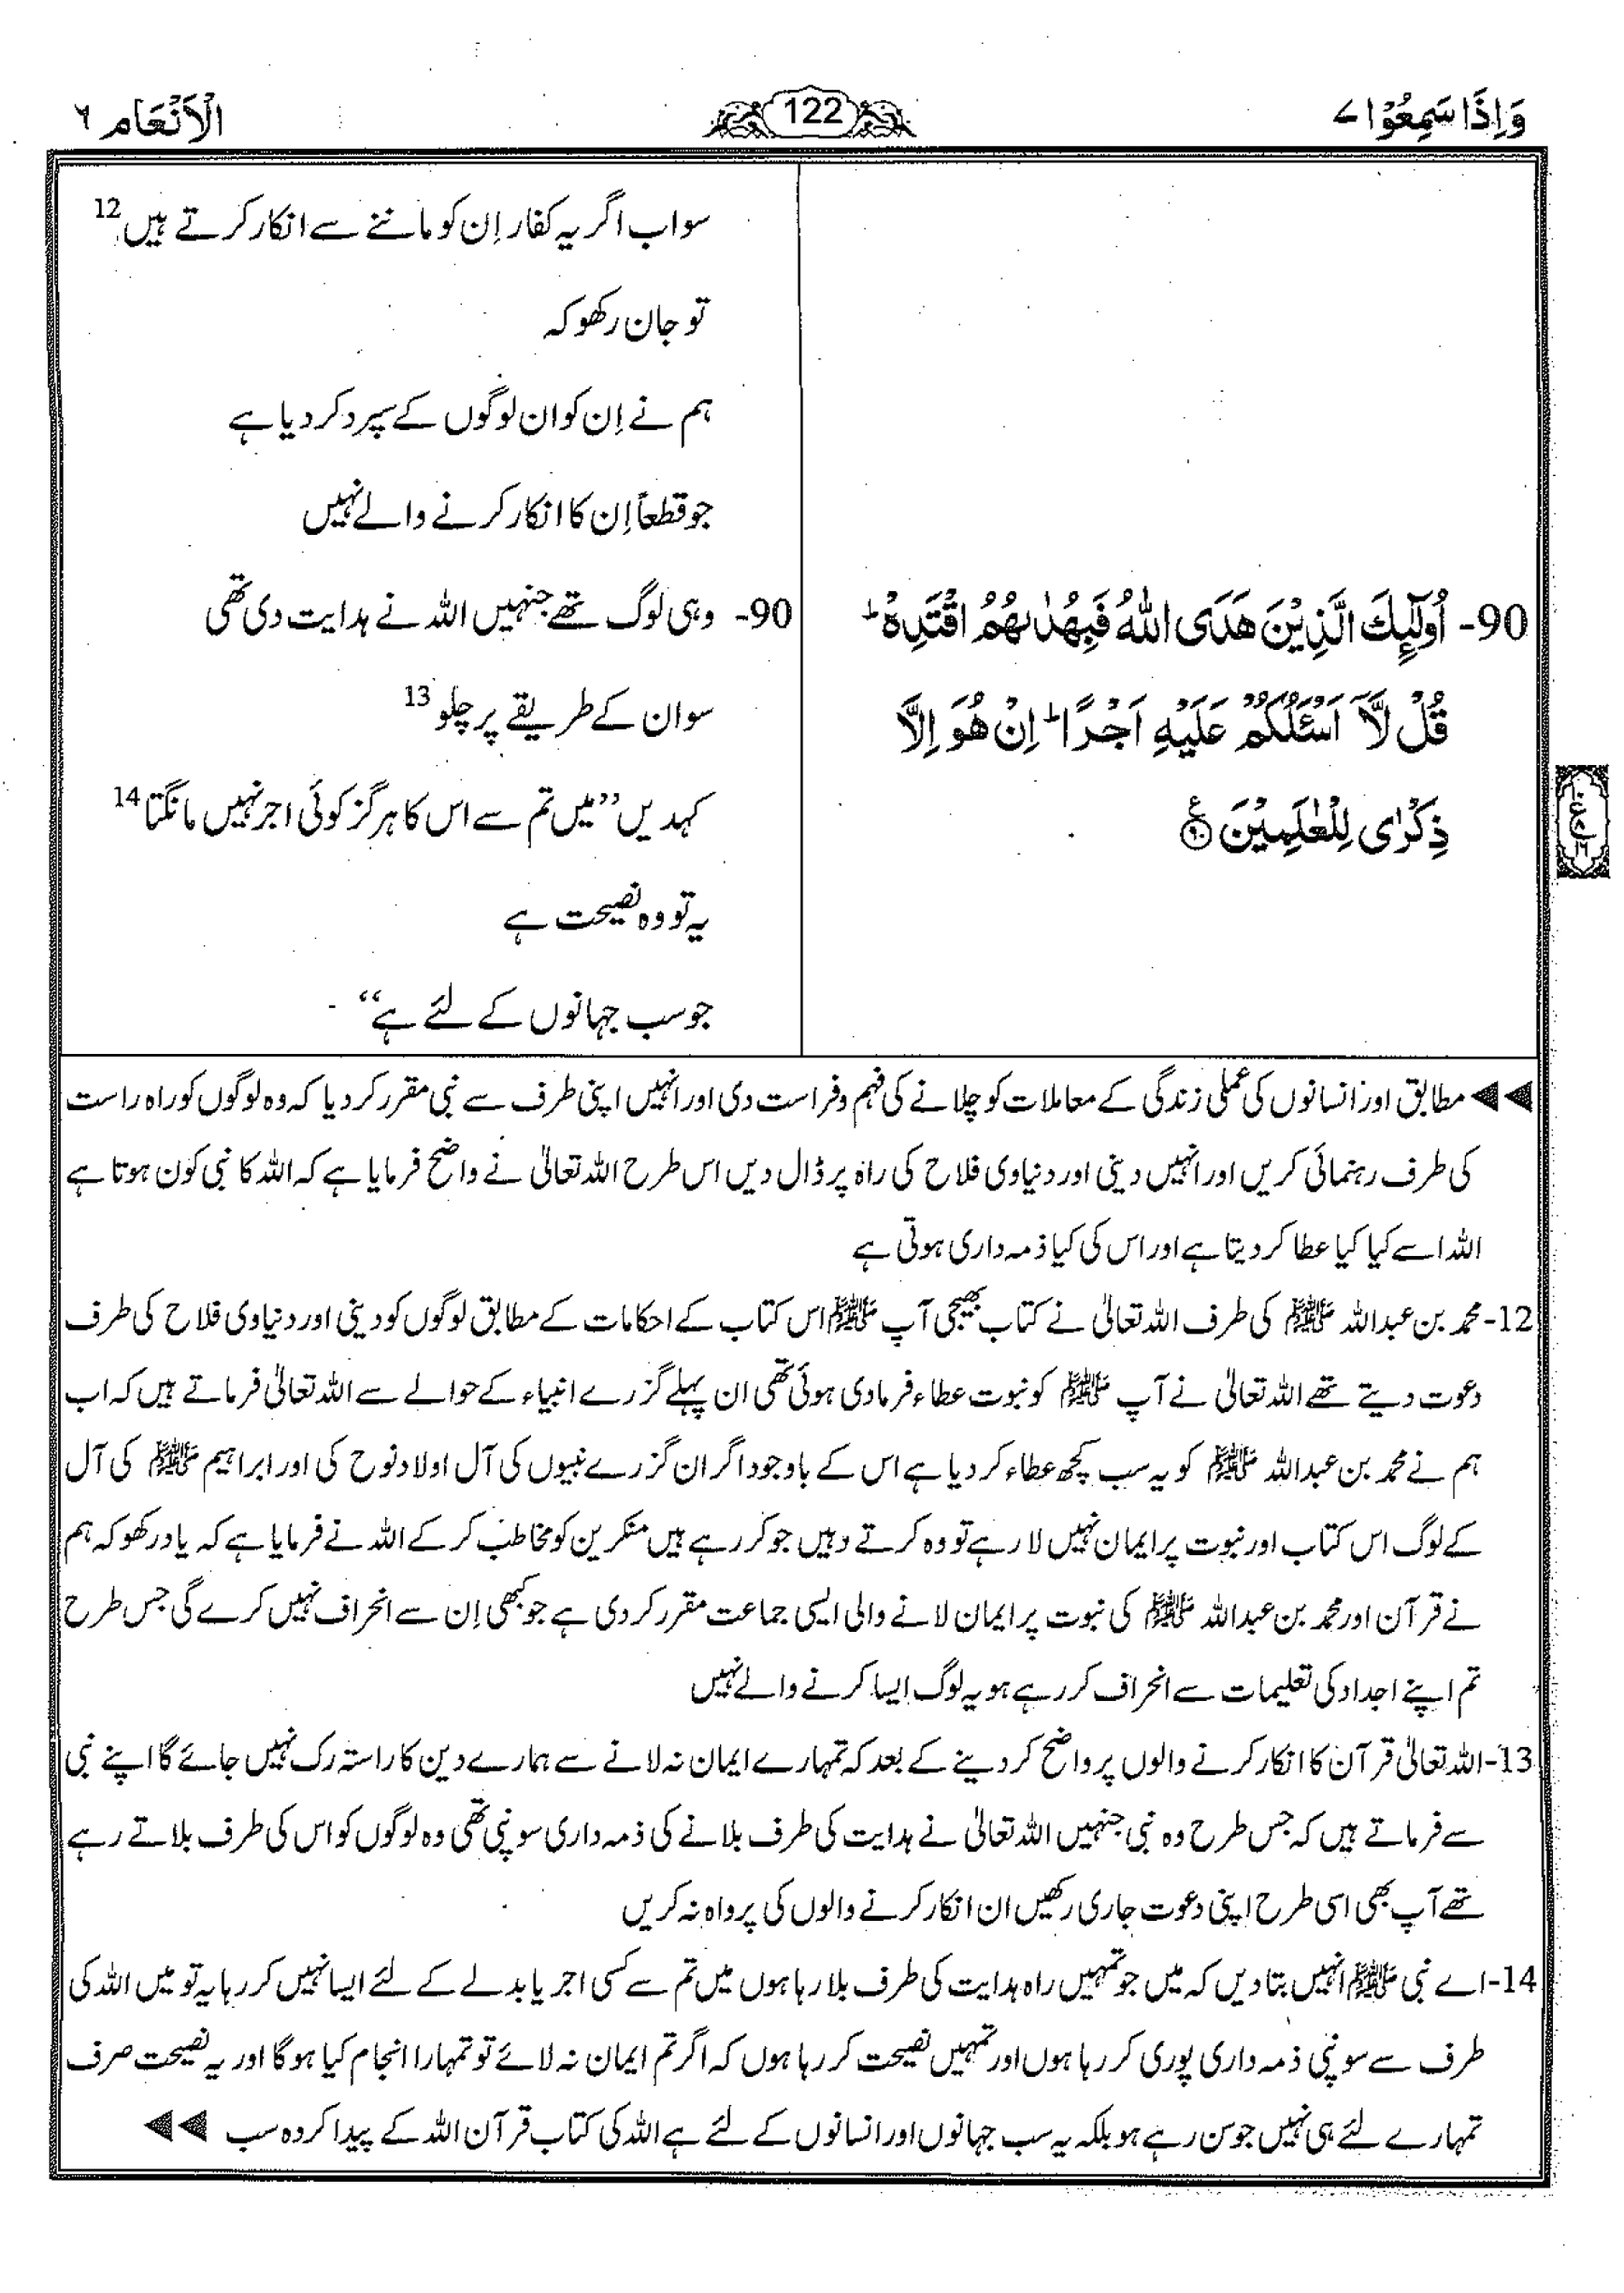 وَاِذَا سَمِعُوْا ۷
122
الْاَنْعَام ۶
90- اُولٰٓئِكَ الَّذِيْنَ هَدَى اللّٰهُ فَبِهُدٰىهُمُ اقْتَدِهْ ؕ
قُلْ لَّاۤ اَسْـَٔلُكُمْ عَلَيْهِ اَجْرًا ؕ اِنْ هُوَ اِلَّا
ذِكْرٰى لِلْعٰلَمِيْنَ ۹۰ ع
سو اب اگر یہ کفار اِن کو ماننے سے انکار کرتے ہیں 12
تو جان رکھو کہ
ہم نے اِن کو ان لوگوں کے سپرد کر دیا ہے
جو قطعاً اِن کا انکار کرنے والے نہیں
90- وہی لوگ تھے جنہیں اللہ نے ہدایت دی تھی
سو ان کے طریقے پر چلو 13
کہدیں ’’میں تم سے اس کا ہرگز کوئی اجر نہیں مانگتا 14
یہ تو وہ نصیحت ہے
جو سب جہانوں کے لئے ہے‘‘ -
◄◄ مطابق اور انسانوں کی عملی زندگی کے معاملات کو چلانے کی فہم و فراست دی اور انہیں اپنی طرف سے نبی مقرر کر دیا کہ وہ لوگوں کو راہ راست
کی طرف رہنمائی کریں اور انہیں دینی اور دنیاوی فلاح کی راہ پر ڈال دیں اس طرح اللہ تعالیٰ نے واضح فرمایا ہے کہ اللہ کا نبی کون ہوتا ہے
اللہ اسے کیا کیا عطا کر دیتا ہے اور اس کی کیا ذمہ داری ہوتی ہے
12- محمد بن عبداللہ ﷺ کی طرف اللہ تعالیٰ نے کتاب بھیجی آپ ﷺ اس کتاب کے احکامات کے مطابق لوگوں کو دینی اور دنیاوی فلاح کی طرف
دعوت دیتے تھے اللہ تعالیٰ نے آپ ﷺ کو نبوت عطاء فرما دی ہوئی تھی ان پہلے گزرے انبیاء کے حوالے سے اللہ تعالیٰ فرماتے ہیں کہ اب
ہم نے محمد بن عبداللہ ﷺ کو یہ سب کچھ عطاء کر دیا ہے اس کے باوجود اگر ان گزرے نبیوں کی آل اولاد نوح کی اور ابراہیم ﷺ کی آل
کے لوگ اس کتاب اور نبوت پر ایمان نہیں لا رہے تو وہ کرتے رہیں جو کر رہے ہیں منکرین کو مخاطب کر کے اللہ نے فرمایا ہے کہ یاد رکھو کہ ہم
نے قرآن اور محمد بن عبداللہ ﷺ کی نبوت پر ایمان لانے والی ایسی جماعت مقرر کر دی ہے جو کبھی اِن سے انحراف نہیں کرے گی جس طرح
تم اپنے اجداد کی تعلیمات سے انحراف کر رہے ہو یہ لوگ ایسا کرنے والے نہیں
13- اللہ تعالیٰ قرآن کا انکار کرنے والوں پر واضح کر دینے کے بعد کہ تمہارے ایمان نہ لانے سے ہمارے دین کا راستہ رک نہیں جائے گا اپنے نبی
سے فرماتے ہیں کہ جس طرح وہ نبی جنہیں اللہ تعالیٰ نے ہدایت کی طرف بلانے کی ذمہ داری سونپی تھی وہ لوگوں کو اس کی طرف بلاتے رہے
تھے آپ بھی اسی طرح اپنی دعوت جاری رکھیں ان انکار کرنے والوں کی پرواہ نہ کریں
14- اے نبی ﷺ انہیں بتا دیں کہ میں جو تمہیں راہ ہدایت کی طرف بلا رہا ہوں میں تم سے کسی اجر یا بدلے کے لئے ایسا نہیں کر رہا یہ تو میں اللہ کی
طرف سے سونپی ذمہ داری پوری کر رہا ہوں اور تمہیں نصیحت کر رہا ہوں کہ اگر تم ایمان نہ لائے تو تمہارا انجام کیا ہو گا اور یہ نصیحت صرف
تمہارے لئے ہی نہیں جو سن رہے ہو بلکہ یہ سب جہانوں اور انسانوں کے لئے ہے اللہ کی کتاب قرآن اللہ کے پیدا کردہ سب ◄◄